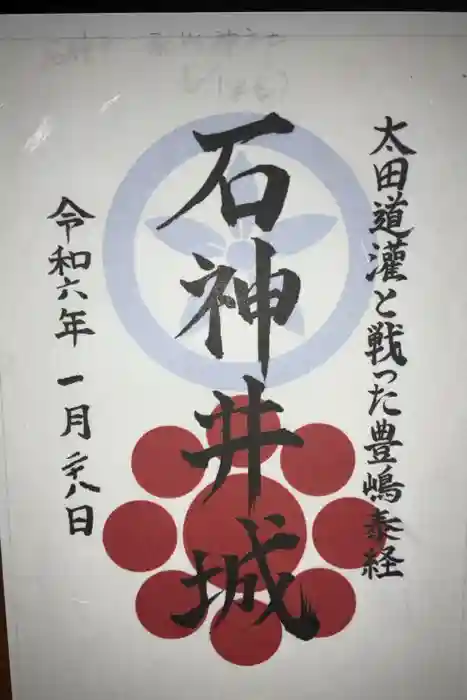 太田道灌と戦った豊嶋泰経
石神井城
令和六年一月二十八日